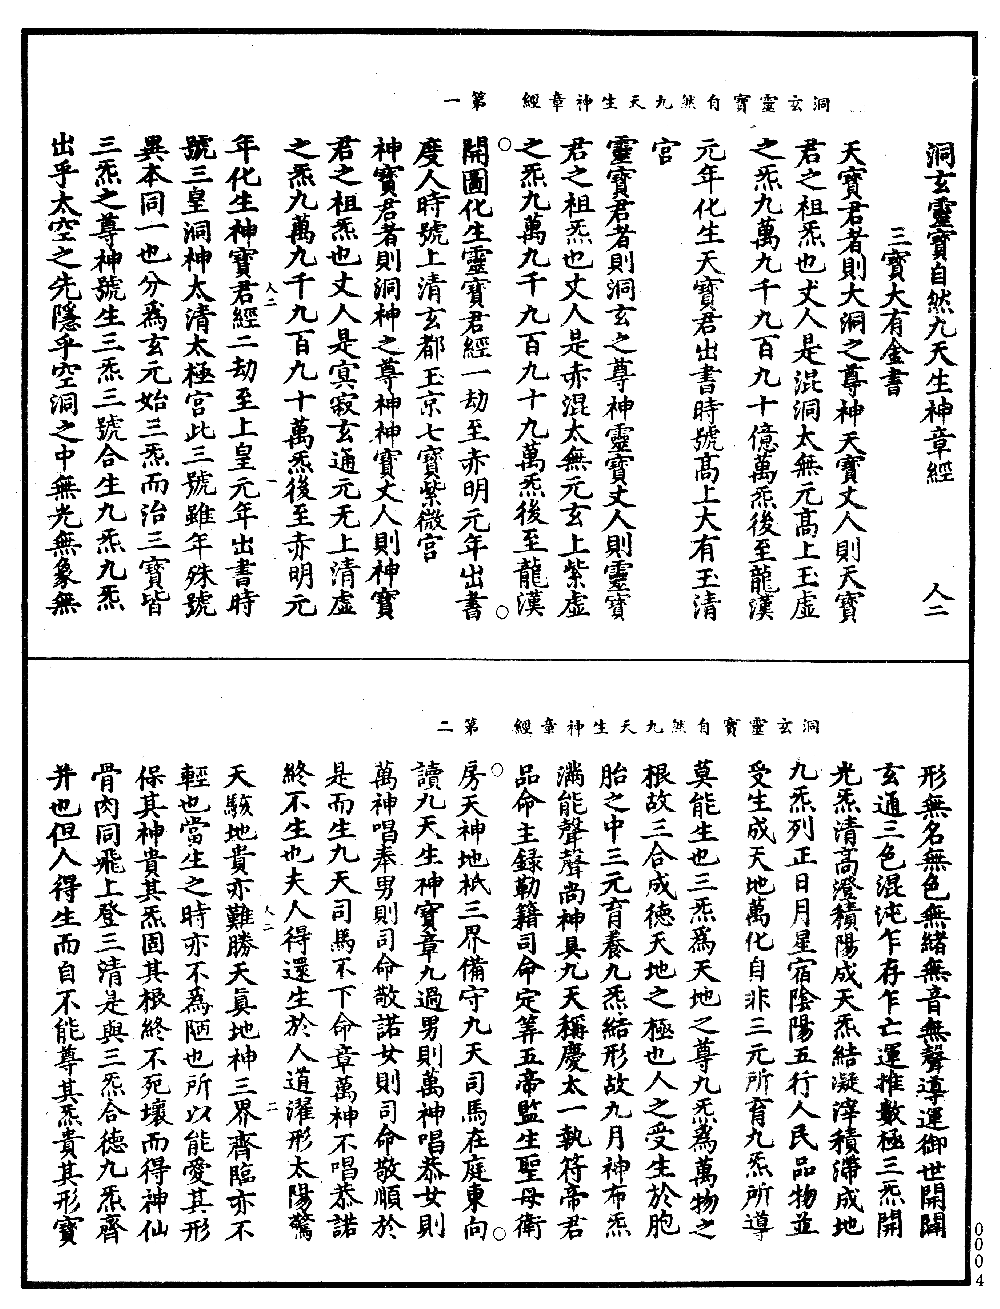 洞玄靈寶自然九天生神章經　第一
洞玄靈寶自然九天生神章經　人二
三寶大有金書
天寶君者則大洞之尊神天寶丈人則天寶
君之祖炁也丈人是混洞太無元高上玉虛
之炁九萬九千九百九十億萬炁後至龍漢
元年化生天寶君出書時號高上大有玉清
宮
靈寶君者則洞玄之尊神靈寶丈人則靈寶
君之祖炁也丈人是赤混太無元玄上紫虛
之炁九萬九千九百九十九萬炁後至龍漢
開圖化生靈寶君經一劫至赤明元年出書
度人時號上清玄都玉京七寶紫微宮
神寶君者則洞神之尊神神寶丈人則神寶
君之祖炁也丈人是冥寂玄通元无上清虛
之炁九萬九千九百九十萬炁後至赤明元
人二　一
年化生神寶君經二劫至上皇元年出書時
號三皇洞神太清太極宮此三號雖年殊號
異本同一也分為玄元始三炁而治三寶皆
三炁之尊神號生三炁三號合生九炁九炁
出乎太空之先隱乎空洞之中無光無象無
洞玄靈寶自然九天生神章經　第二
形無名無色無緒無音無聲導運御世開闢
玄通三色混沌乍存乍亡運推數極三炁開
光炁清高澄積陽成天炁結凝滓積滯成地
九炁列正日月星宿陰陽五行人民品物並
受生成天地萬化自非三元所育九炁所導
莫能生也三炁為天地之尊九炁為萬物之
根故三合成德天地之極也人之受生於胞
胎之中三元育養九炁結形故九月神布炁
滿能聲聲尚神具九天稱慶太一執符帝君
品命主錄勒籍司命定筭五帝監生聖母衛
房天神地祇三界備守九天司馬在庭東向
讀九天生神寶章九過男則萬神唱恭女則
萬神唱奉男則司命敬諾女則司命敬順於
是而生九天司馬不下命章萬神不唱恭諾
終不生也夫人得還生於人道濯形太陽驚
人二　二
天駭地貴亦難勝天真地神三界齊臨亦不
輕也當生之時亦不為陋也所以能愛其形
保其神貴其炁固其根終不死壞而得神仙
骨肉同飛上登三清是與三炁合德九炁齊
并也但人得生而自不能尊其炁貴其形寶
0004